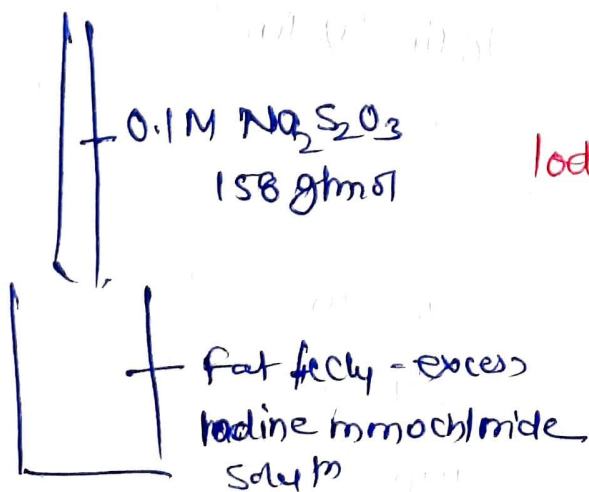 0.1M Na₂S₂O₃
158 g/mol
Iod
fat + CCl₄ - excess
Iodine monochloride
Solution